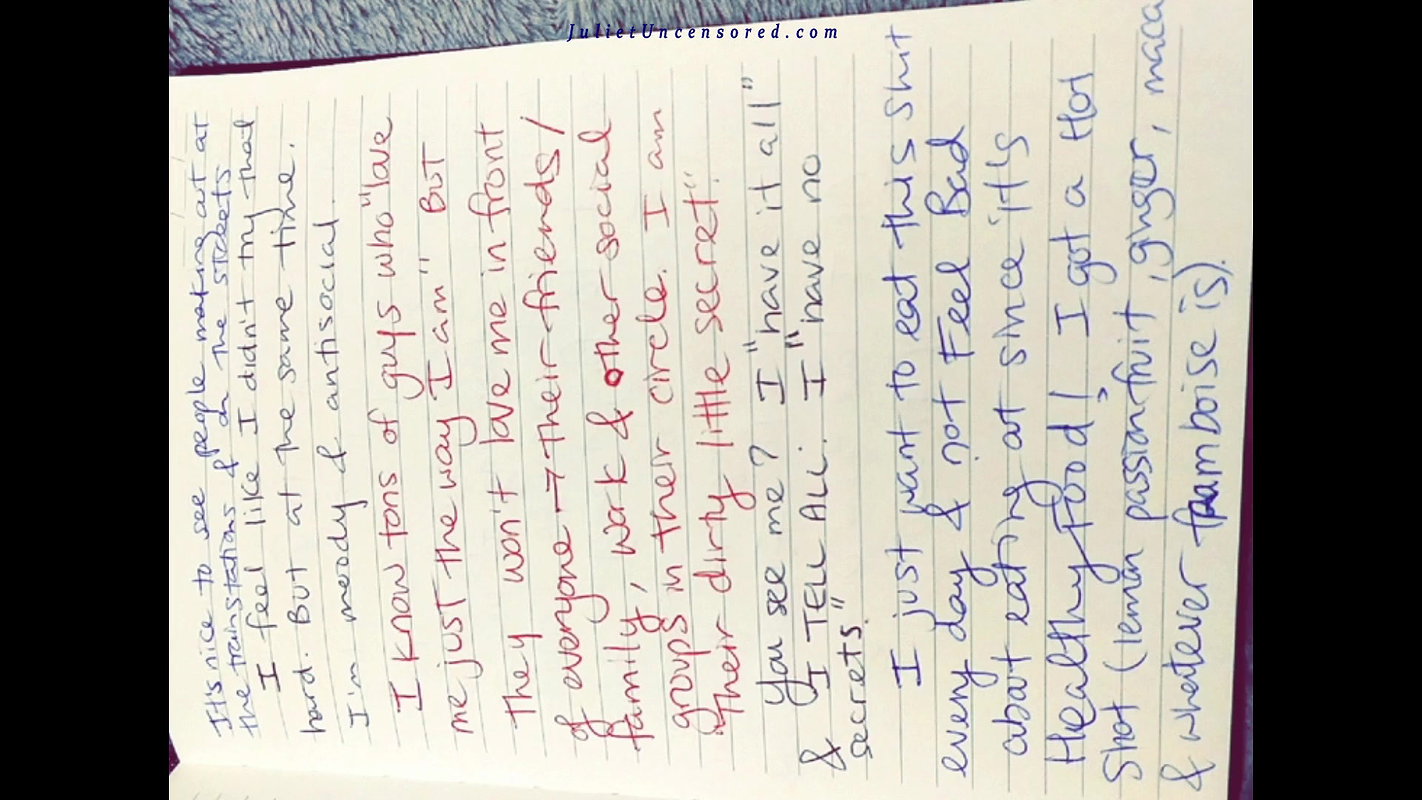 JulietUncensored.com
It's nice to see people making out at
the trainstations & on the streets
I feel like I didn't try that
hard. But at the same time,
I'm moody & antisocial.
I know tons of guys who "love
me just the way I am" BUT
They won't love me in front
of everyone → their friends/
family, work & other social
groups in their circle. I am
"their dirty little secret".
You see me? I "have it all"
& I TELL ALL. I "have no
secrets."
I just want to eat this shit
every day & not Feel Bad
about eating at since it's
Healthy Food! I got a Hot
Shot (lemon, passionfruit, ginger, maca
& whatever framboise is).